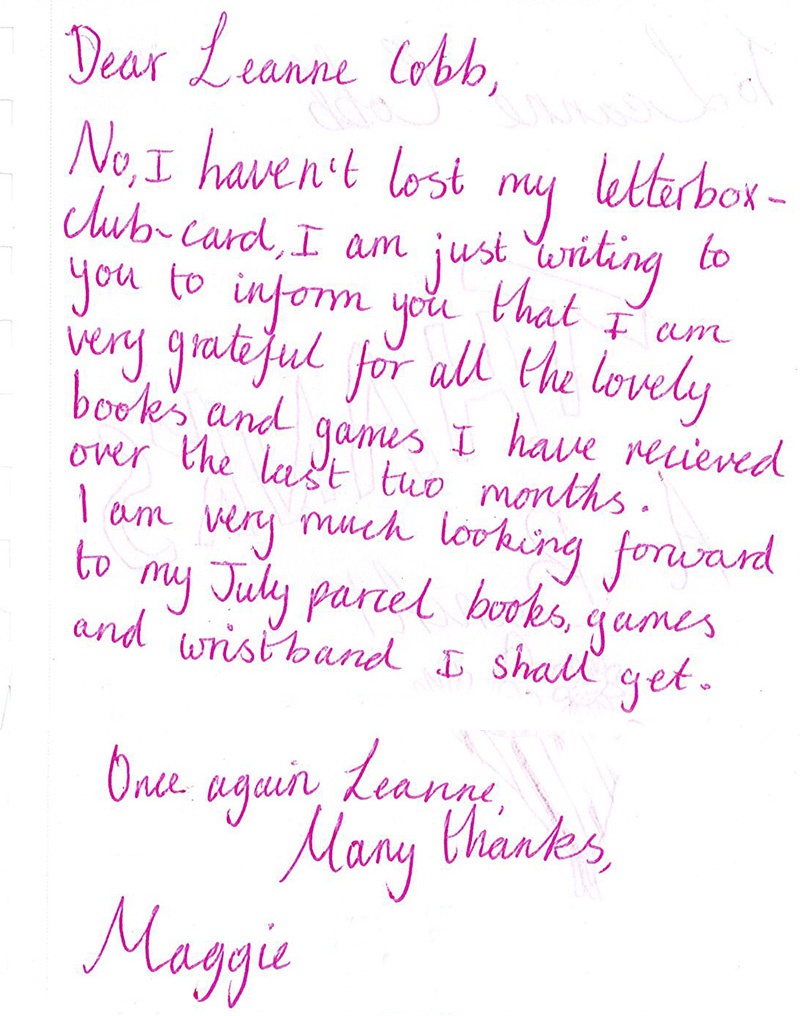 Dear Leanne Cobb,
No, I haven't lost my letterbox-
club-card, I am just writing to
you to inform you that I am
very grateful for all the lovely
books and games I have recieved
over the last two months.
I am very much looking forward
to my July parcel books, games
and wristband I shall get.
Once again Leanne,
Many thanks,
Maggie